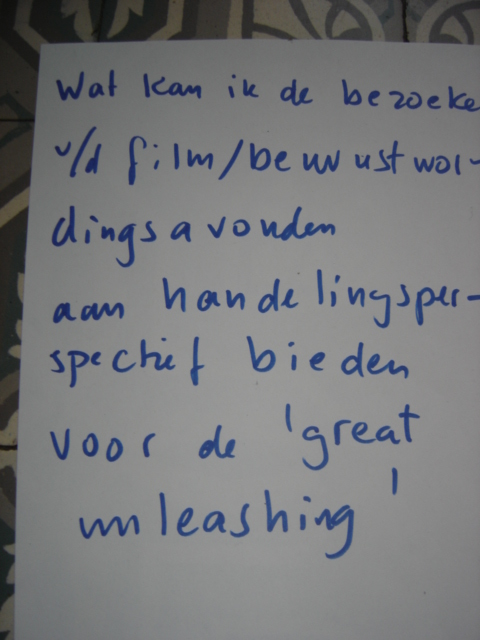 Wat kan ik de bezoeke
v/d film/bewustwor-
dingsavonden
aan handelingsper-
spectief bieden
voor de 'great
unleashing'